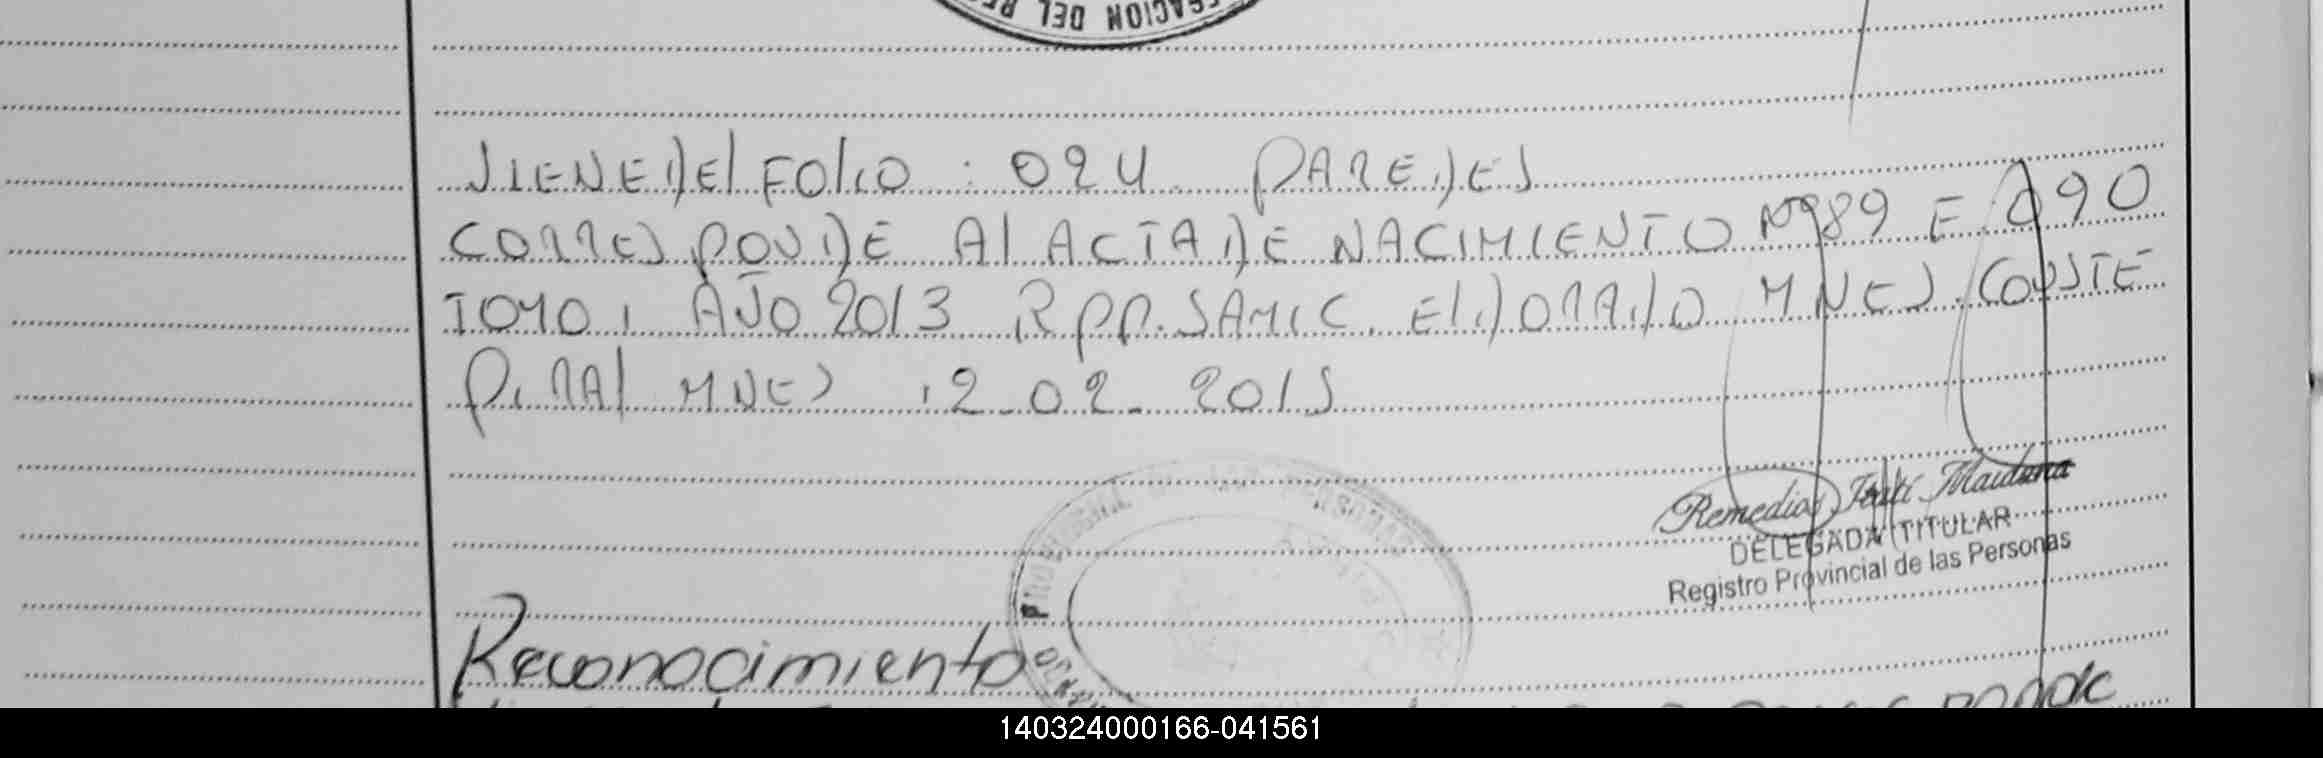 GACION DEL RE
VIENE DEL FOLIO : 024 PAREDES
CORRESPONDE AL ACTA DE NACIMIENTO Nº 89 F 090
TOMO I AÑO 2013 R.P.P. SAMIC. ELDORADO MNES. CONSTE
PIRAY MNES 12-02-2015
PROVINCIAL DE LAS PERSONAS
Remedios Itatí Maidana
DELEGADA TITULAR
Registro Provincial de las Personas
Reconocimiento
140324000166-041561